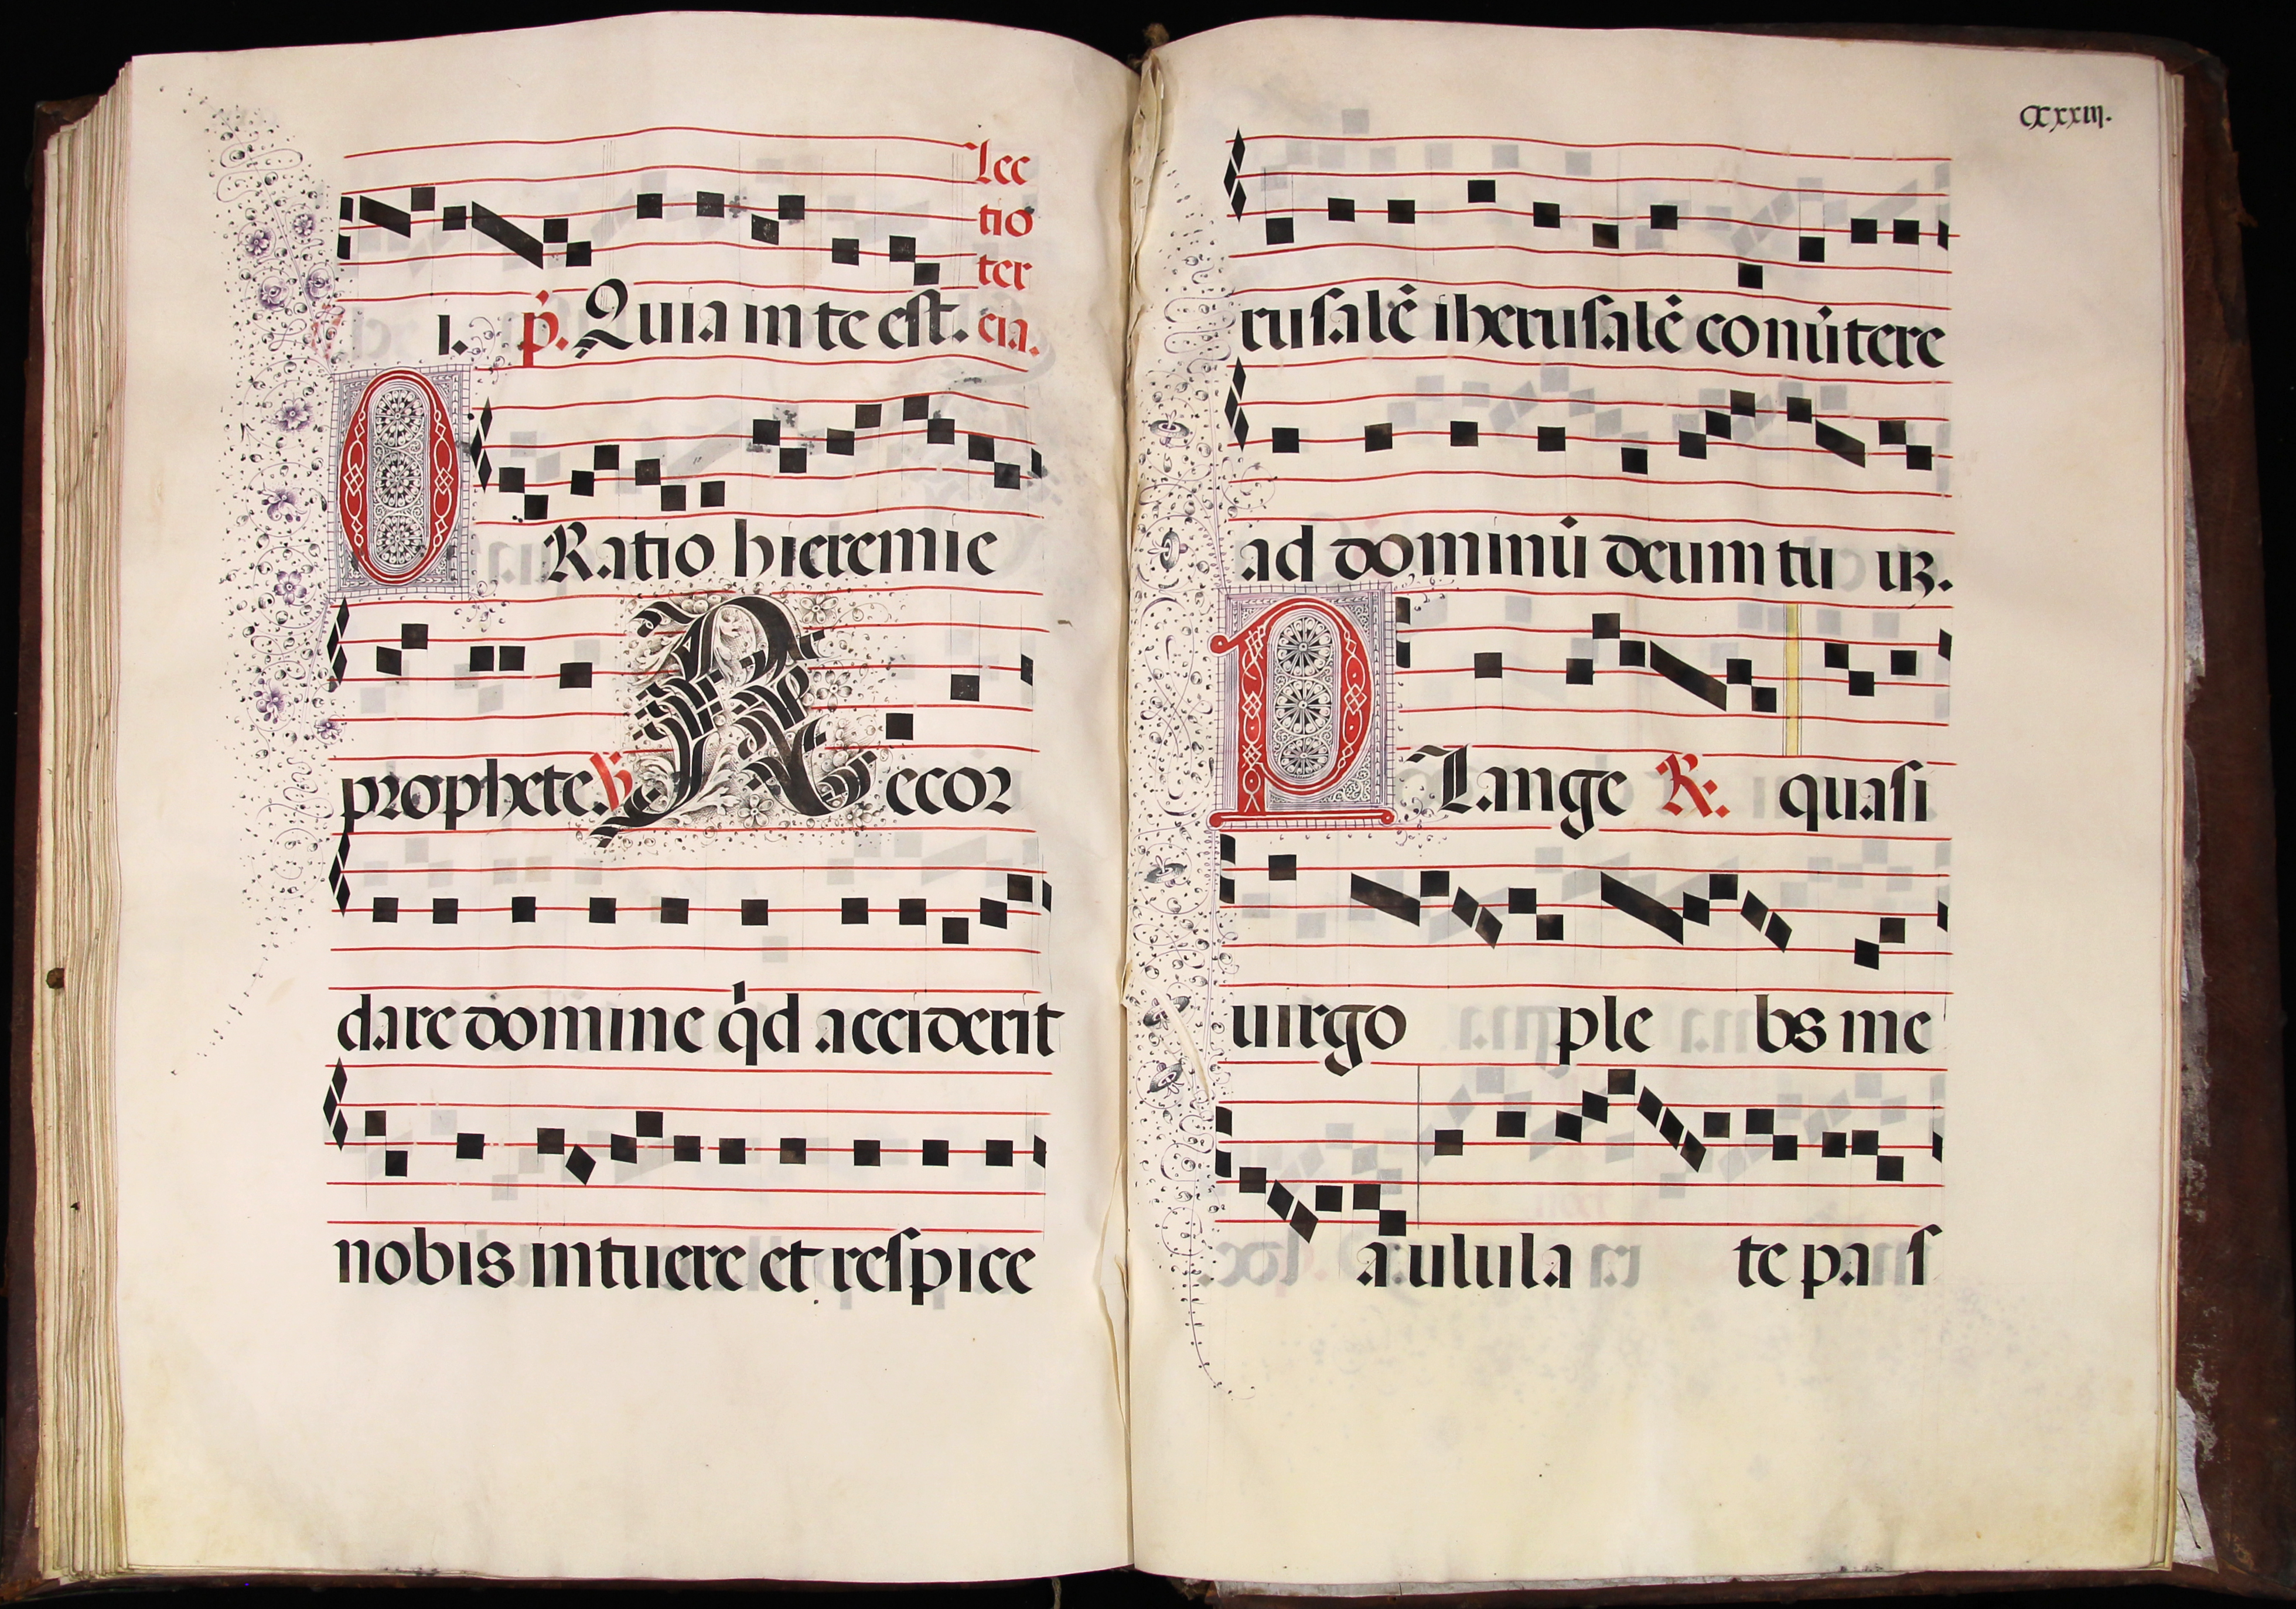 Lec
tio
ter
ı. p̃. Quia in te est. cia.
ORatio hieremie
prophete. h Recor
dare domine q̇d acciderit
nobis intuere et respice
CXXXIII.
rusalē iherusalē conũtere
ad dominū deum tu uꝫ.
PLange R: quasi
uirgo ple bs me
a: ulula te pa s